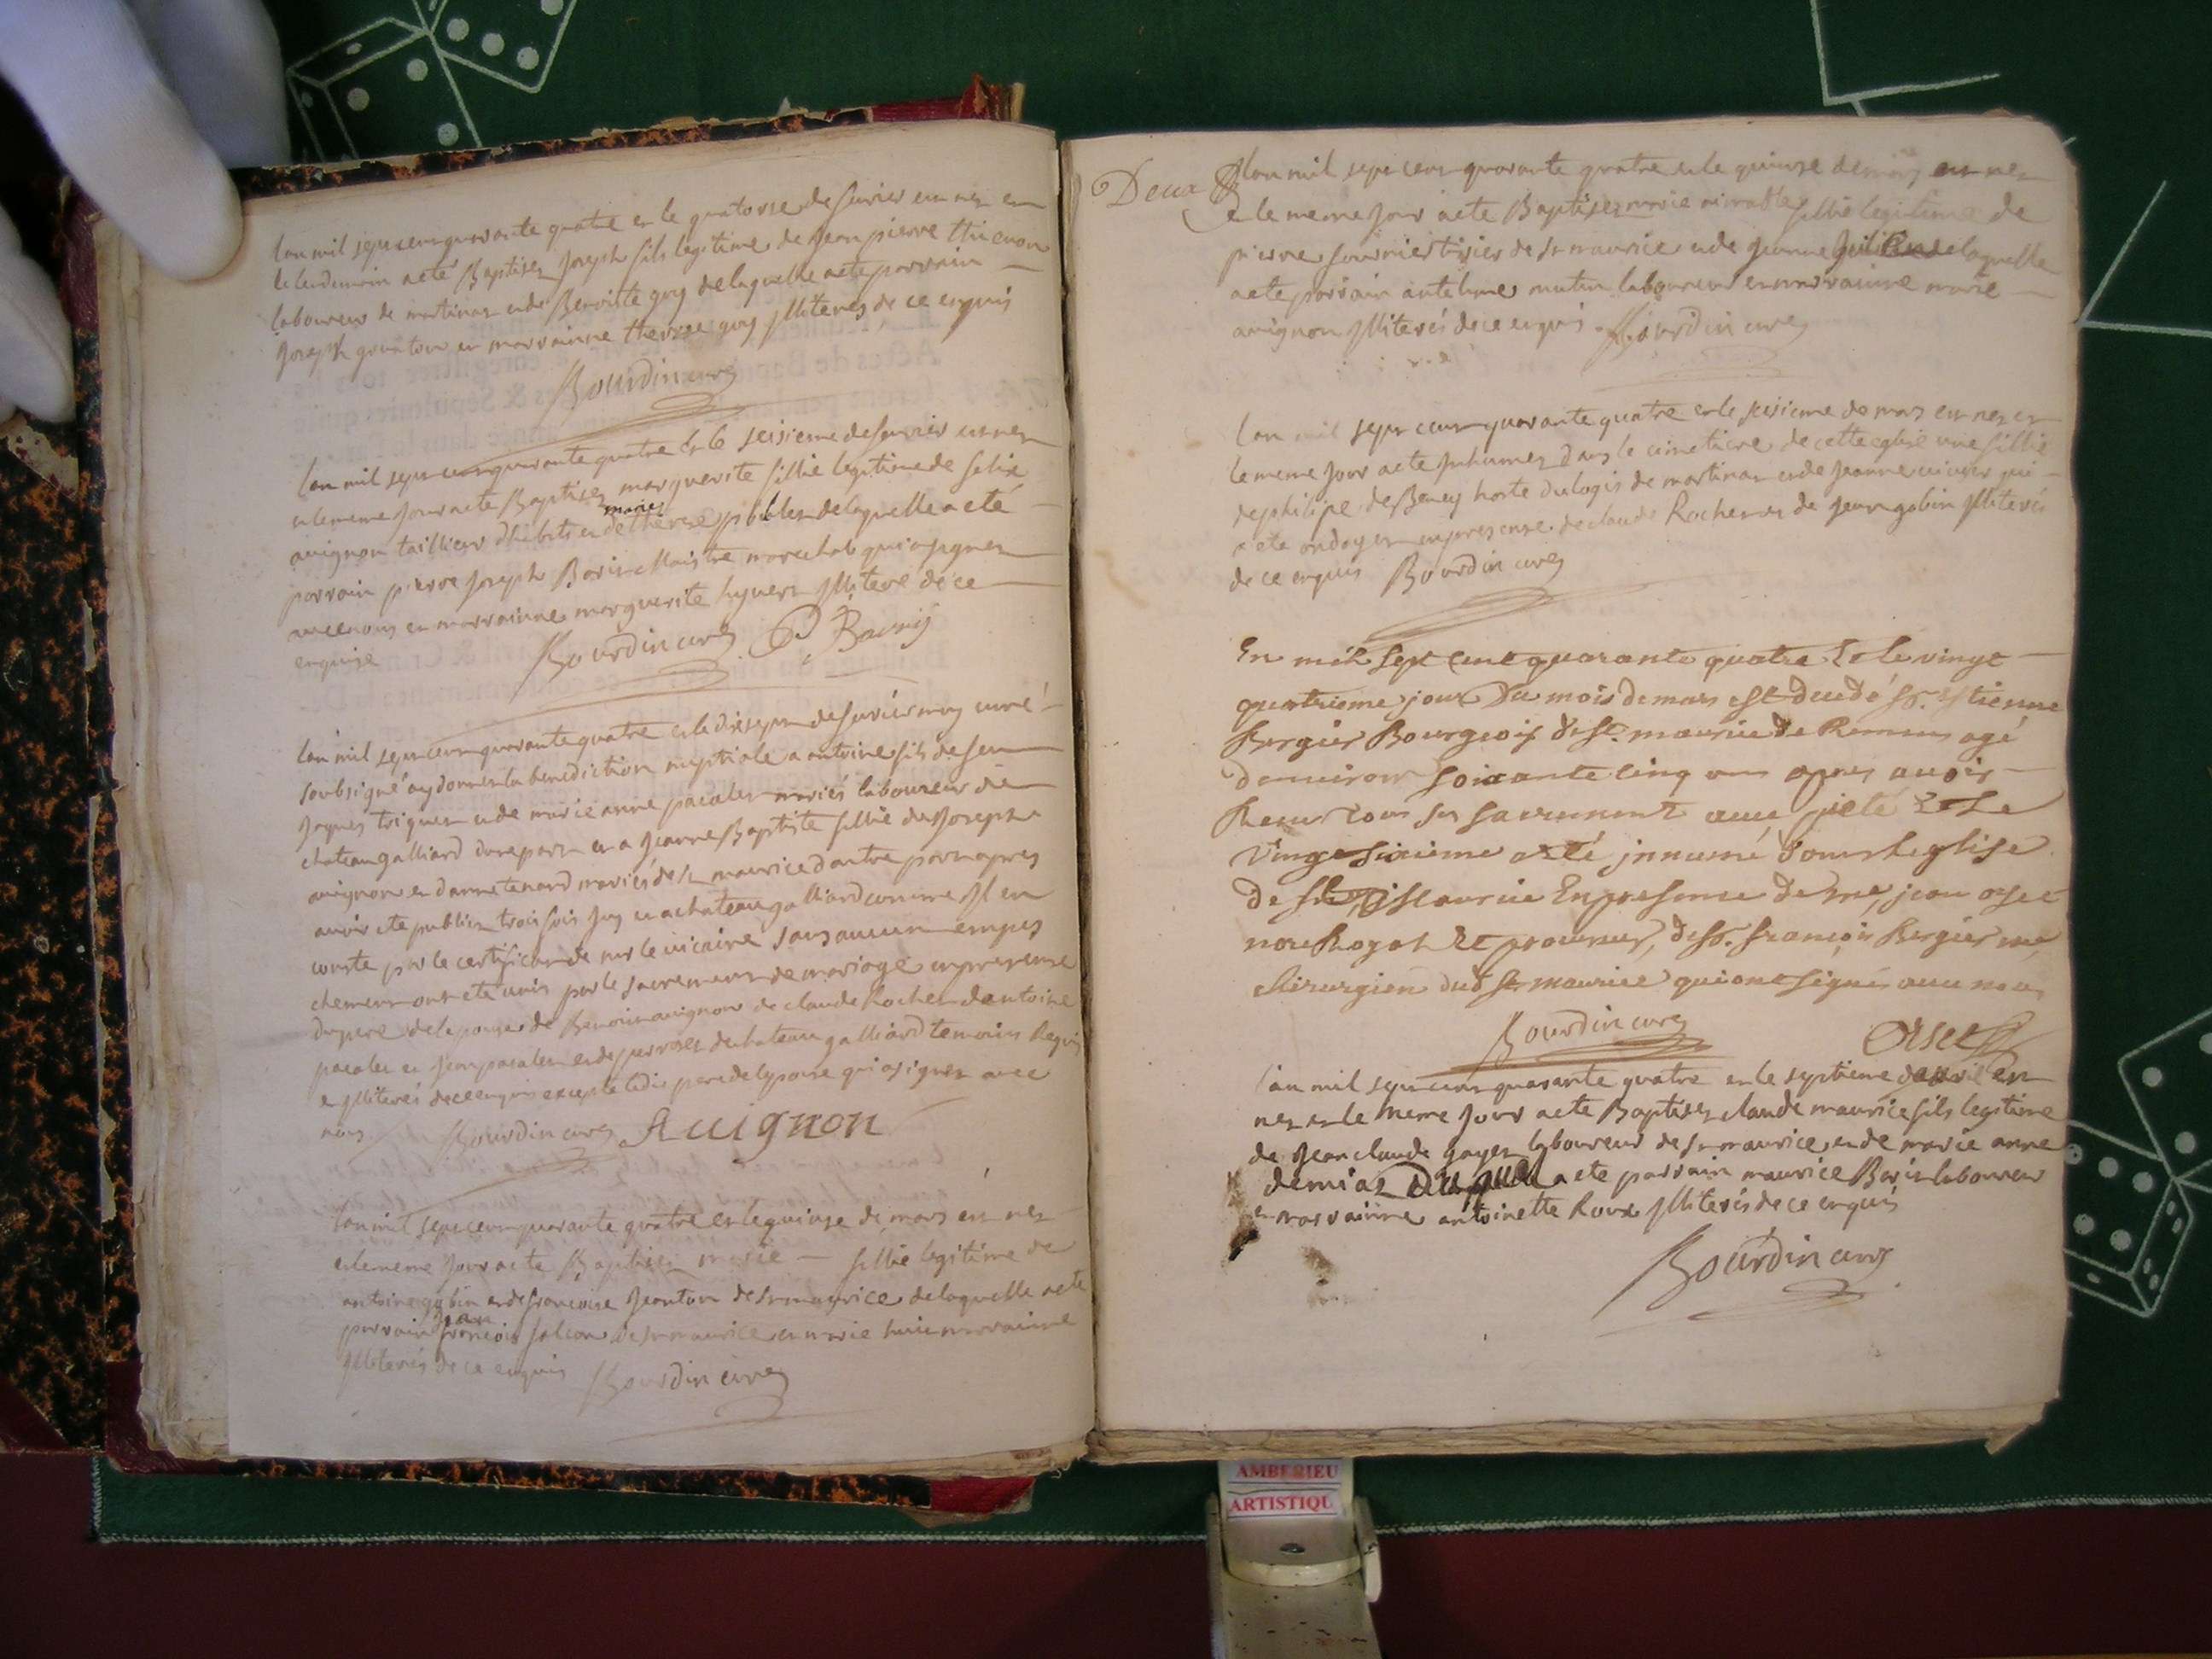 lan mil sept cens quarante quatre et le quatorse de fevrier est nez et
le lendemain a eté Baptisez joseph fils legitime de jean pierre thienon
laboureur de martinas et de Benoitte guy de laquelle a ete parrain
joseph et marrainne therese guy jlliterés de ce enquis
Bourdin curé
lan mil sept cens quarante quatre et le seisieme de fevrier est nez
et le meme jour a ete Baptisez marguerite fillie legitime de felix
avignon taillieur dhabits et de therese de laquelle a eté
mariés
parrain pierre joseph Boris Maistre marechal qui a signez
avec nous et marrainne marguerite jlliteré de ce
enquise
Bourdin curé P Bouriy
lan mil sept cens quarante quatre et le dix sept de fevrier moy curé
soubsigné ay donnez la benediction nuptiale a antoine fils de feu
jaques et de marie anne pacalet mariés laboureur de
chateau galliard dune part et a jeanne Baptiste fillie de joseph
avignon et danne tenard mariés de st maurice dautre part apres
avoir ete publiez trois fois jcy et a chateau galliard comme jl en
conste par le certificat de mr le vicaire sans aucun empes
chement ont eté unis par le sacrement de mariage en presence
du pere de lepouse de Benoit avignon de claude Rochet dantoine
pacalet et jean pacalet et de de chateau galliard temoins Requis
et jlliterés de ce enquis excepté ledit pere de lepouse qui a signez avec
nous Bourdin curé Auignon
lan mil sept cens quarante quatre et le quinse de mars est nez
et le meme jour a ete Baptisez marie — fillie legitime de
antoine gobin et de francoise jeanton de st maurice de laquelle a ete
jean
parrain françois falcon de st maurice et marie marrainne
jlliterés de ce enquis Bourdin curé
Deux
lan mil sept cens quarante quatre et le quinse de mars est nez
et le meme jour a ete Baptisez marie aimable fillie legitime de
pierre fournier de st maurice et de jeanne de laquelle
a ete parrain antelme mutin laboureur et marrainne marie
avignon jlliterés de ce enquis Bourdin curé
lan mil sept cens quarante quatre et le seisieme de mars est nez et
le meme jour a ete jnhumez dans le cimetiere de cette eglise une fillie
de philipe de Beney hoste du logis de martinas et de jeanne qui
a ete ondoyez en presence de claude Rochet et de jean gobin jlliterés
de ce enquis Bourdin curé
En mil sept cent quarante quatre Et le vingt
quatrieme jour Du mois de mars est decedé sr. Estienne
Bergier Bourgeois de st. maurice de Remens agé
denviron soixante cinq ans apres avoir
Receu tous ses sacrement avec pieté Et Le
vingt sixieme a eté jnnumé dans Leglise
de st Maurice En presence de me, jean orset
note Royal Et procureur, de sr. françois Bergier me
chirurgien dud st maurice qui ont signé avec nous
Bourdin curé Orset
lan mil sept cens quarante quatre et le septieme davril est
nez et le meme jour a ete Baptisez claude maurice fils legitime
de jean claude goyet laboureur de st maurice et de marie anne
demias Duquel a ete parrain maurice Boris laboureur
et marrainne antoinette Roux jlliterés de ce enquis
Bourdin curé
AMBERIEU
ARTISTIQU